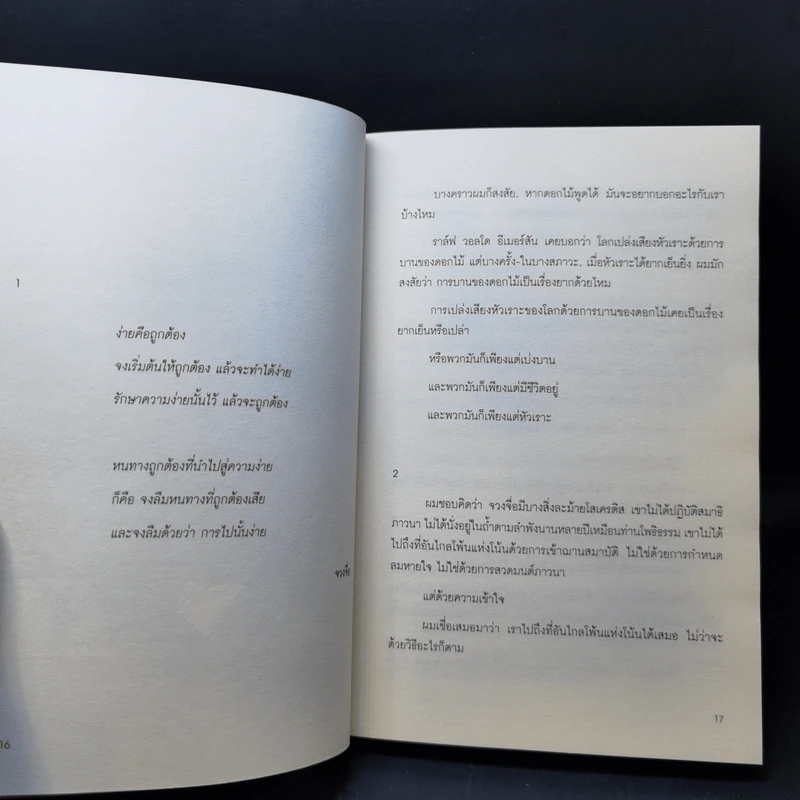 1
ง่ายคือถูกต้อง
จงเริ่มต้นให้ถูกต้อง แล้วจะทำได้ง่าย
รักษาความง่ายนั้นไว้ แล้วจะถูกต้อง
หนทางถูกต้องที่นำไปสู่ความง่าย
ก็คือ จงลืมหนทางที่ถูกต้องเสีย
และจงลืมด้วยว่า การไปนั้นง่าย
จวงจื่อ
16
บางคราวผมก็สงสัย, หากดอกไม้พูดได้ มันจะอยากบอกอะไรกับเรา
บ้างไหม
ราล์ฟ วอลโด อีเมอร์สัน เคยบอกว่า โลกเปล่งเสียงหัวเราะด้วยการ
บานของดอกไม้ แต่บางครั้ง-ในบางสภาวะ, เมื่อหัวเราะได้ยากเย็นยิ่ง ผมมัก
สงสัยว่า การบานของดอกไม้เป็นเรื่องยากด้วยไหม
การเปล่งเสียงหัวเราะของโลกด้วยการบานของดอกไม้เคยเป็นเรื่อง
ยากเย็นหรือเปล่า
หรือพวกมันก็เพียงแต่เบ่งบาน
และพวกมันก็เพียงแต่มีชีวิตอยู่
และพวกมันก็เพียงแต่หัวเราะ
2
ผมชอบคิดว่า จวงจื่อมีบางสิ่งละม้ายโสเครติส เขาไม่ได้ปฏิบัติสมาธิ
ภาวนา ไม่ได้นั่งอยู่ในถ้ำตามลำพังนานหลายปีเหมือนท่านโพธิธรรม เขาไม่ได้
ไปถึงที่อันไกลโพ้นแห่งโน้นด้วยการเข้าฌานสมาบัติ ไม่ใช่ด้วยการกำหนด
ลมหายใจ ไม่ใช่ด้วยการสวดมนต์ภาวนา
แต่ด้วยความเข้าใจ
ผมเชื่อเสมอมาว่า เราไปถึงที่อันไกลโพ้นแห่งโน้นได้เสมอ ไม่ว่าจะ
ด้วยวิธีอะไรก็ตาม
17